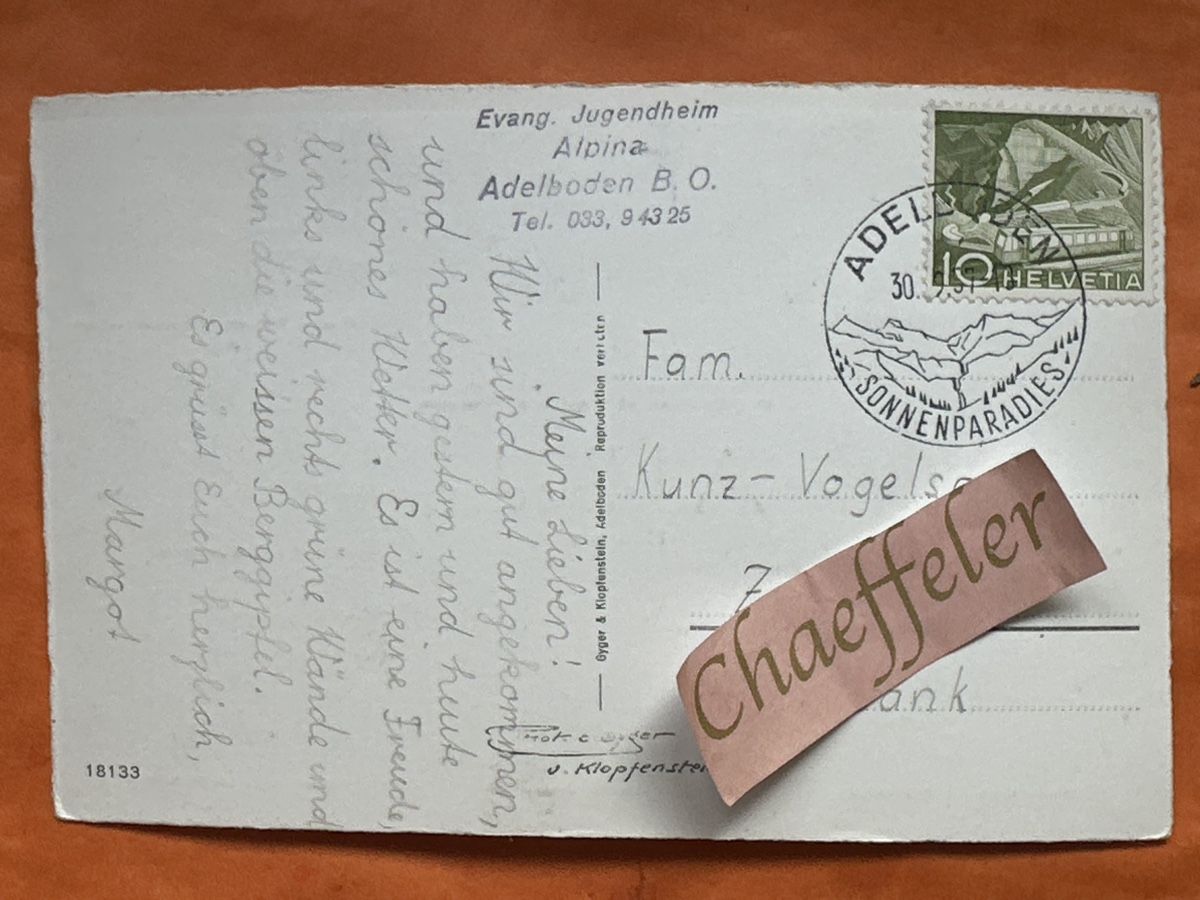 Evang. Jugendheim
Alpina
Adelboden B. O.
Tel. 033, 9 43 25
Meine Lieben!
Wir sind gut angekommen,
und haben gestern und heute
schönes Wetter. Es ist eine Freude,
links und rechts grüne Wände und
oben die weissen Berggipfel.
Es grüsst Euch herzlich,
Margot
18133
Gyger & Klopfenstein, Adelboden Reproduktion verboten
ADELBODEN
SONNENPARADIES
10 HELVETIA
Fam.
Kunz-
Chaeffeler